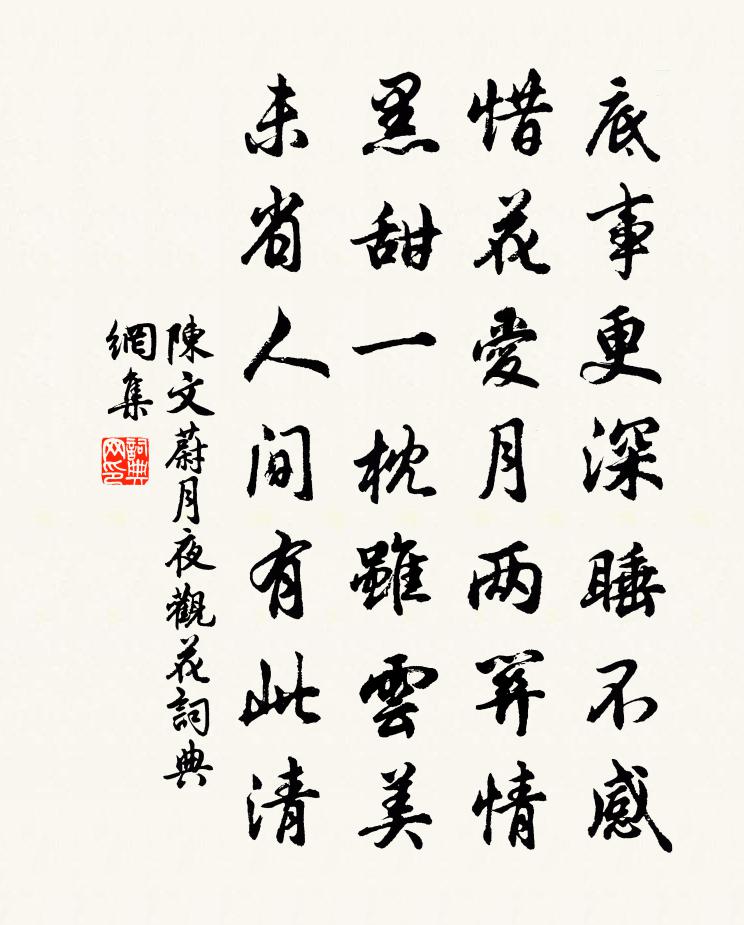 底事更深睡不感
惜花愛月两関情
黑甜一枕雖雲美
未省人間有此清
陳文蔚月夜觀花詞典
網集
詞典
网印